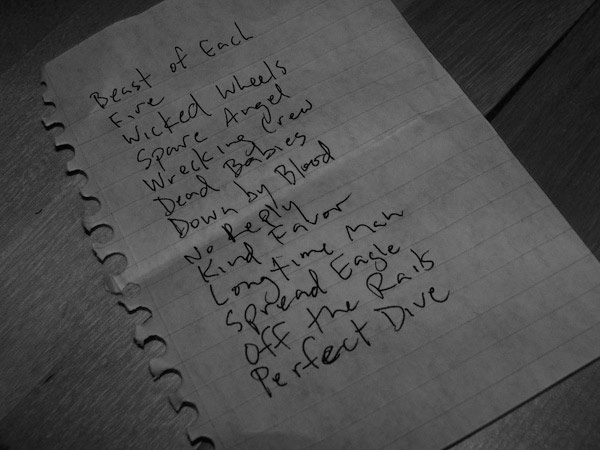 Beast of Each
Fire
Wicked Wheels
Spare Angel
Wrecking Crew
Dead Babies
Down by Blood
No Reply
Kind Favor
Longtime Man
Spread Eagle
Off the Rails
Perfect Dive